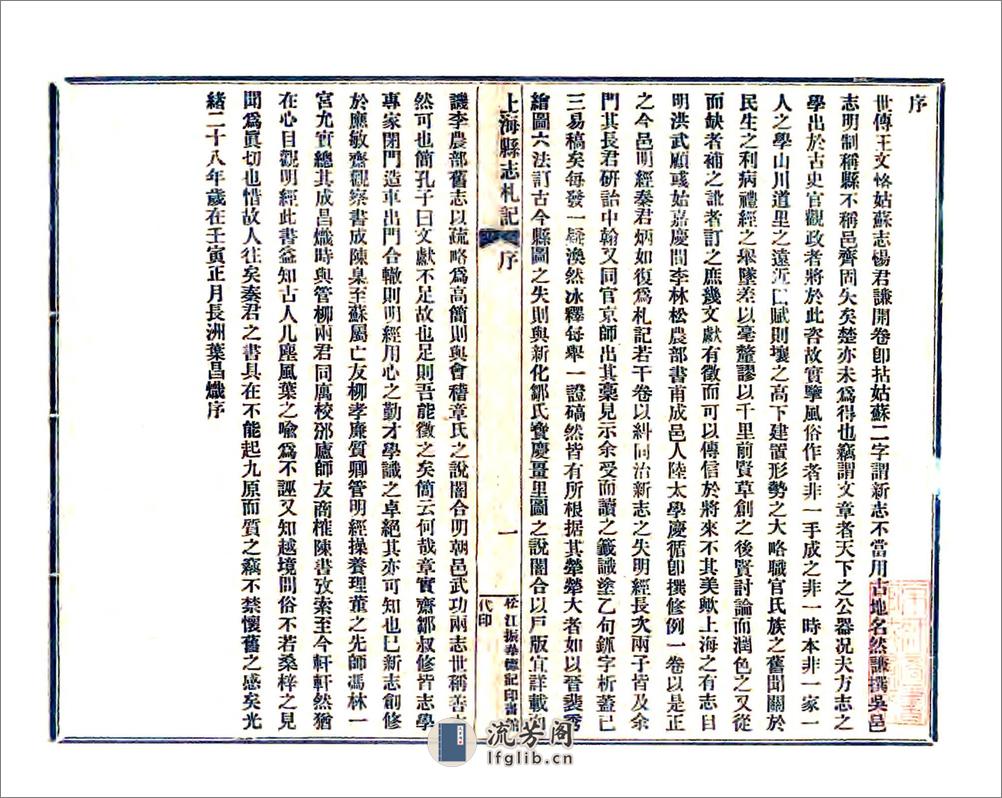 序
世傳王文恪姑蘇志楊君謙開卷卽拈姑蘇二字謂新志不當用古地名然謙撰吳邑
志明制稱縣不稱邑齊固失矣楚亦未爲得也竊謂文章者天下之公器况夫方志之
學出於古史官觀政者將於此咨故實驗風俗作者非一手成之非一時本非一家一
人之學山川道里之遠近口賦則壤之高下建置形勢之大略職官氏族之舊聞關於
民生之利病禮經之舉墜差以毫釐謬以千里前賢草創之後賢討論而潤色之又從
而缺者補之訛者訂之庶幾文獻有徵而可以傳信於將來不其美歟上海之有志自
明洪武顧彧始嘉慶間李林松農部書甫成邑人陸太學慶循卽撰修例一卷以是正
之今邑明經秦君炳如復爲札記若干卷以糾同治新志之失明經長次兩子皆及余
門其長君硏詒中翰又同官京師出其稾見示余受而讀之籤識塗乙句鉥字析蓋已
三易稿矣每發一疑渙然冰釋每舉一證碻然皆有所根据其犖犖大者如以晉裴秀
繪圖六法訂古今縣圖之失則與新化鄒氏寶慶畺里圖之說闇合以戶版宜詳載
上海縣志札記 序 一 松江振華德記印書館代印
譏李農部舊志以疏略爲高簡則與會稽章氏之說闇合明朝邑武功兩志世稱善
然可也簡孔子曰文獻不足故也足則吾能徵之矣簡云何哉章實齋鄒叔修皆志學
專家閉門造車出門合轍則明經用心之勤才學識之卓絕其亦可知也已新志創修
於應敏齋觀察書成陳臬至蘇屬亡友柳孝廉質卿管明經操養理董之先師馮林一
宮允實總其成昌熾時與管柳兩君同厲校邠廬師友商榷陳書攷索至今軒軒然猶
在心目觀明經此書益知古人几塵風葉之喩爲不誣又知越境問俗不若桑梓之見
聞爲眞切也惜故人往矣秦君之書具在不能起九原而質之竊不禁懷舊之感矣光
緒二十八年歲在壬寅正月長洲葉昌熾序
流芳阁
lfglib.cn